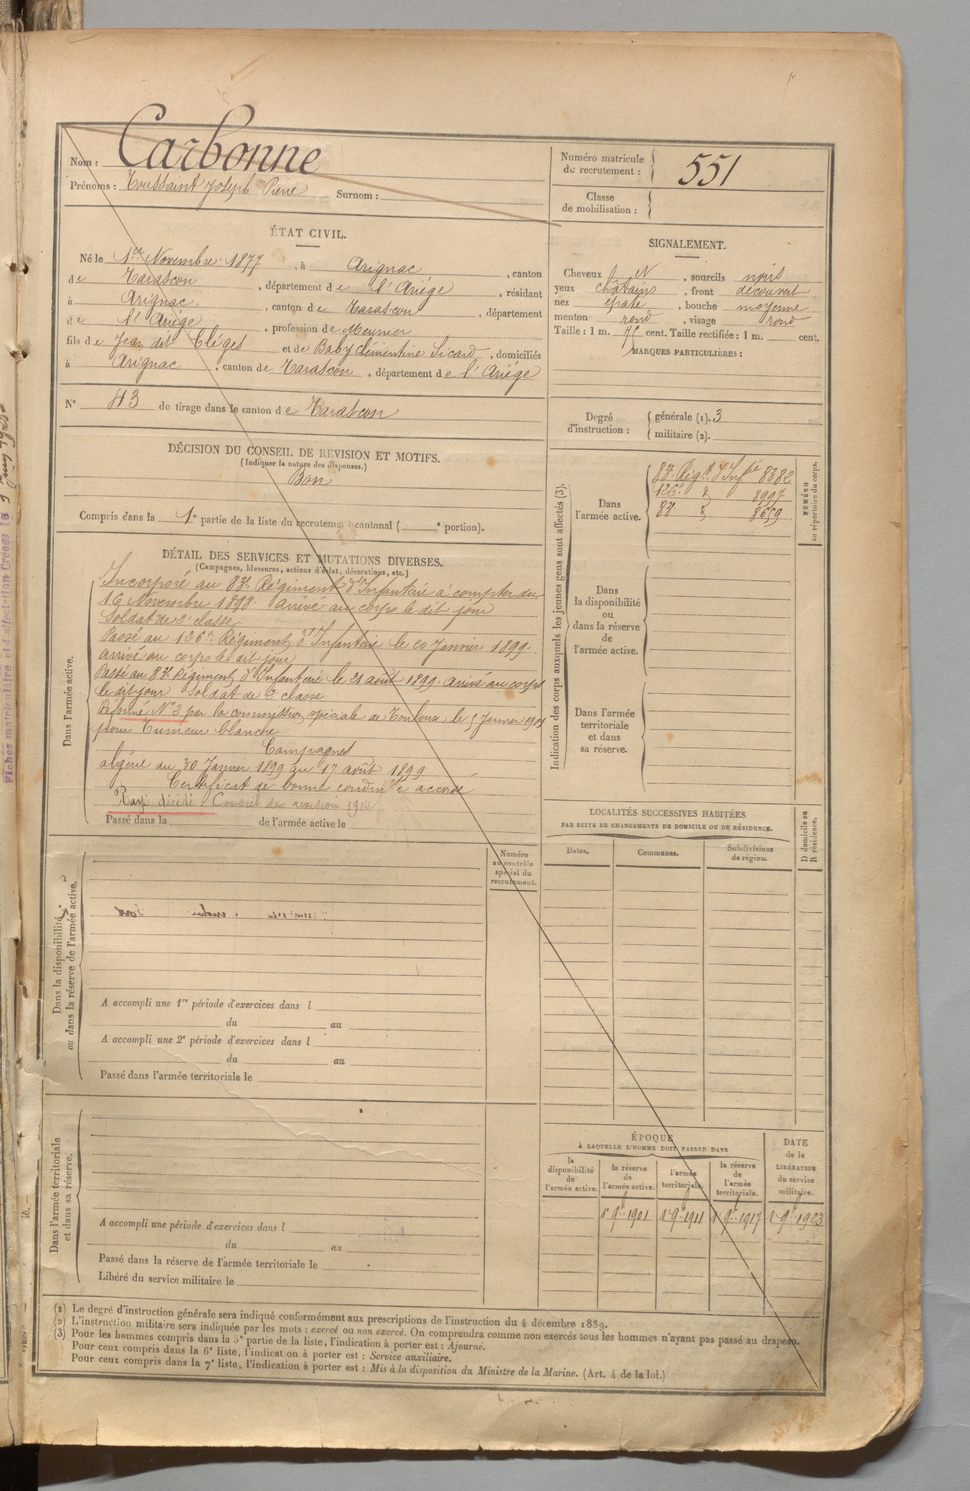 Nom : Carbonne
Prénoms : Toussaint Joseph Pierre Surnom :
Numéro matricule
du recrutement : 551
Classe
de mobilisation :
ÉTAT CIVIL.
Né le 1er Novembre 1877, à Arignac, canton
de Tarascon, département de l'Ariège, résidant
à Arignac, canton de Tarascon, département
de l'Ariège, profession de Meunier
fils de Jean dit Clèges et de Baby Clémentine Sicard, domiciliés
à Arignac, canton de Tarascon, département de l'Ariége
N° 43 de tirage dans le canton de Tarascon
SIGNALEMENT.
Cheveux N, sourcils noirs
yeux chatains, front découvert
nez épaté, bouche moyenne
menton rond, visage rond
Taille : 1 m. cent. Taille rectifiée : 1 m. cent.
MARQUES PARTICULIÈRES :
Degré
d'instruction :
générale (1). 3
militaire (2).
DÉCISION DU CONSEIL DE REVISION ET MOTIFS.
(Indiquer la nature des dispenses.)
Bon
Compris dans la 1e partie de la liste du recrutement cantonal ( e portion).
DÉTAIL DES SERVICES ET MUTATIONS DIVERSES.
(Campagnes, blessures, actions d'éclat, décorations, etc.)
Dans l'armée active.
Incorporé au 87e Régiment d'Infanterie à compter du
16 Novembre 1898. arrivé au corps le dit jour
Soldat de 2e classe
Passé au 126e Régiment d'Infanterie le 20 Janvier 1899.
arrivé au corps le dit jour
Passé au 87e Régiment d'Infanterie le 21 août 1899. arrivé au corps
le dit jour Soldat de 2e classe
Réformé N° 2 par la commission spéciale de Toulouse le 5 Janvier
pour Tumeur blanche
Campagnes
algérie du 30 Janvier 1899 au 17 août 1899
Certificat de bonne conduite accordé
Rayé décédé Conseil de revision
Passé dans la de l'armée active le
Indication des corps auxquels les jeunes gens sont affectés (3).
NUMÉRO
au répertoire du corps.
Dans
l'armée active.
87e Régt d'Infie 8382
126e d° 8997
87 d° 8659
Dans
la disponibilité
ou
dans la réserve
de
l'armée active.
Dans l'armée
territoriale
et dans
sa réserve.
LOCALITÉS SUCCESSIVES HABITÉES
PAR SUITE DE CHANGEMENTS DE DOMICILE OU DE RÉSIDENCE.
D domicile ou
R résidence.
Dates.
Communes.
Subdivisions
de région.
Numéro
au contrôle
spécial du
recrutement.
Dans la disponibilité
ou dans la réserve de l'armée active.
A accompli une 1re période d'exercices dans l
du au
A accompli une 2e période d'exercices dans l
du au
Passé dans l'armée territoriale le
Dans l'armée territoriale
et dans sa réserve.
A accompli une période d'exercices dans l
du au
Passé dans la réserve de l'armée territoriale le
Libéré du service militaire le
ÉPOQUE
À LAQUELLE L'HOMME DOIT PASSER DANS
la
disponibilité
de
l'armée active.
la réserve
de
l'armée active.
l'armée
territoriale.
la réserve
de
l'armée
territoriale.
DATE
de la
LIBÉRATION
du service
militaire.
1er 9bre 1901
1er 9bre 1911
1er 9bre 1917
1er 9bre 1923
(1) Le degré d'instruction générale sera indiqué conformément aux prescriptions de l'instruction du 4 décembre 1889.
(2) L'instruction militaire sera indiquée par les mots : exercé ou non exercé. On comprendra comme non exercés tous les hommes n'ayant pas passé au drapeau.
(3) Pour les hommes compris dans la 5e partie de la liste, l'indication à porter est : Ajourné.
Pour ceux compris dans la 6e liste, l'indication à porter est : Service auxiliaire.
Pour ceux compris dans la 7e liste, l'indication à porter est : Mis à la disposition du Ministre de la Marine. (Art. 4 de la loi.)